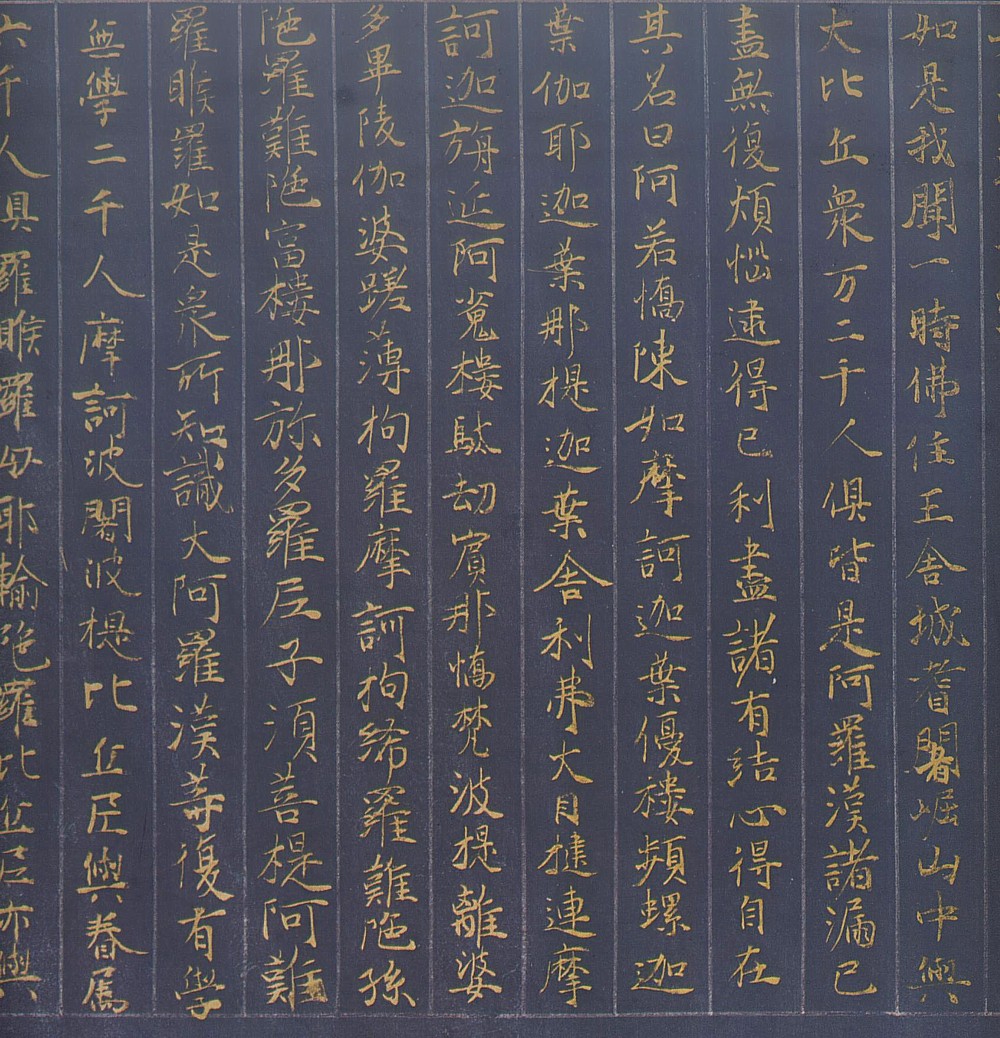 如是我聞一時佛住王舍城耆闍崛山中與
大比丘衆万二千人俱皆是阿羅漢諸漏已
盡無復煩惱逮得己利盡諸有結心得自在
其名曰阿若憍陳如摩訶迦葉優樓頻螺迦
葉伽耶迦葉那提迦葉舍利弗大目揵連摩
訶迦旃延阿㝹樓駄劫賓那憍梵波提離婆
多畢陵伽婆蹉薄拘羅摩訶拘絺羅難陁孫
陁羅難陁富樓那弥多羅尼子須菩提阿難
羅睺羅如是衆所知識大阿羅漢等復有學
無學二千人摩訶波闍波提比丘尼與眷属
六千人俱羅睺羅母耶輸陁羅比丘尼亦與